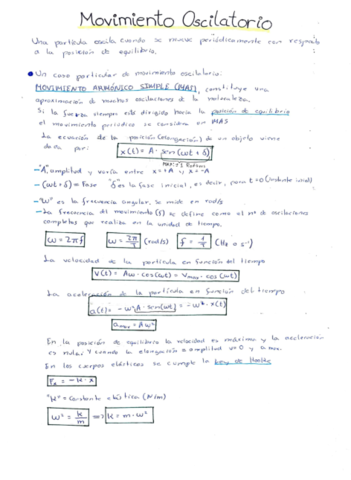 Movimiento Oscilatorio
Una partícula oscila cuando se mueve periódicamente con respecto
a la posición de equilibrio.
Un caso particular de movimiento oscilatorio:
MOVIMIENTO ARMÓNICO SIMPLE (MAS), constituye una
aproximación de muchas oscilaciones de la naturaleza.
Si la fuerza siempre está dirigida hacia la posición de equilibrio
el movimiento periódico se considera un MAS
La ecuación de la posición (elongación) de un objeto viene
dada por: x(t) = A · sen(ωt + δ)
"A" amplitud y varía entre x=+A y x=-A
(ωt+δ) = Fase "δ" es la fase inicial, es decir, para t=0 (instante inicial)
"ω" es la frecuencia angular, se mide en rad/s
La frecuencia del movimiento (f) se define como el nº de oscilaciones
completas que realiza en la unidad de tiempo.
ω = 2πf ω = 2π/T (rad/s) f = 1/T (Hz o s⁻¹)
La velocidad de la partícula en función del tiempo
v(t) = Aω · cos(ωt) = vmax · cos(ωt)
La aceleración de la partícula en función del tiempo
a(t) = -ω²A · sen(ωt) = -ω² · x(t)
amax = Aω²
En la posición de equilibrio la velocidad es máxima y la aceleración
es nula. Y cuando la elongación = amplitud v=0 y a max.
En los cuerpos elásticos se cumple la Ley de Hooke
= -K · x
"K" = Constante elástica (N/m)
ω² = K/m ⇔ K = m · ω²